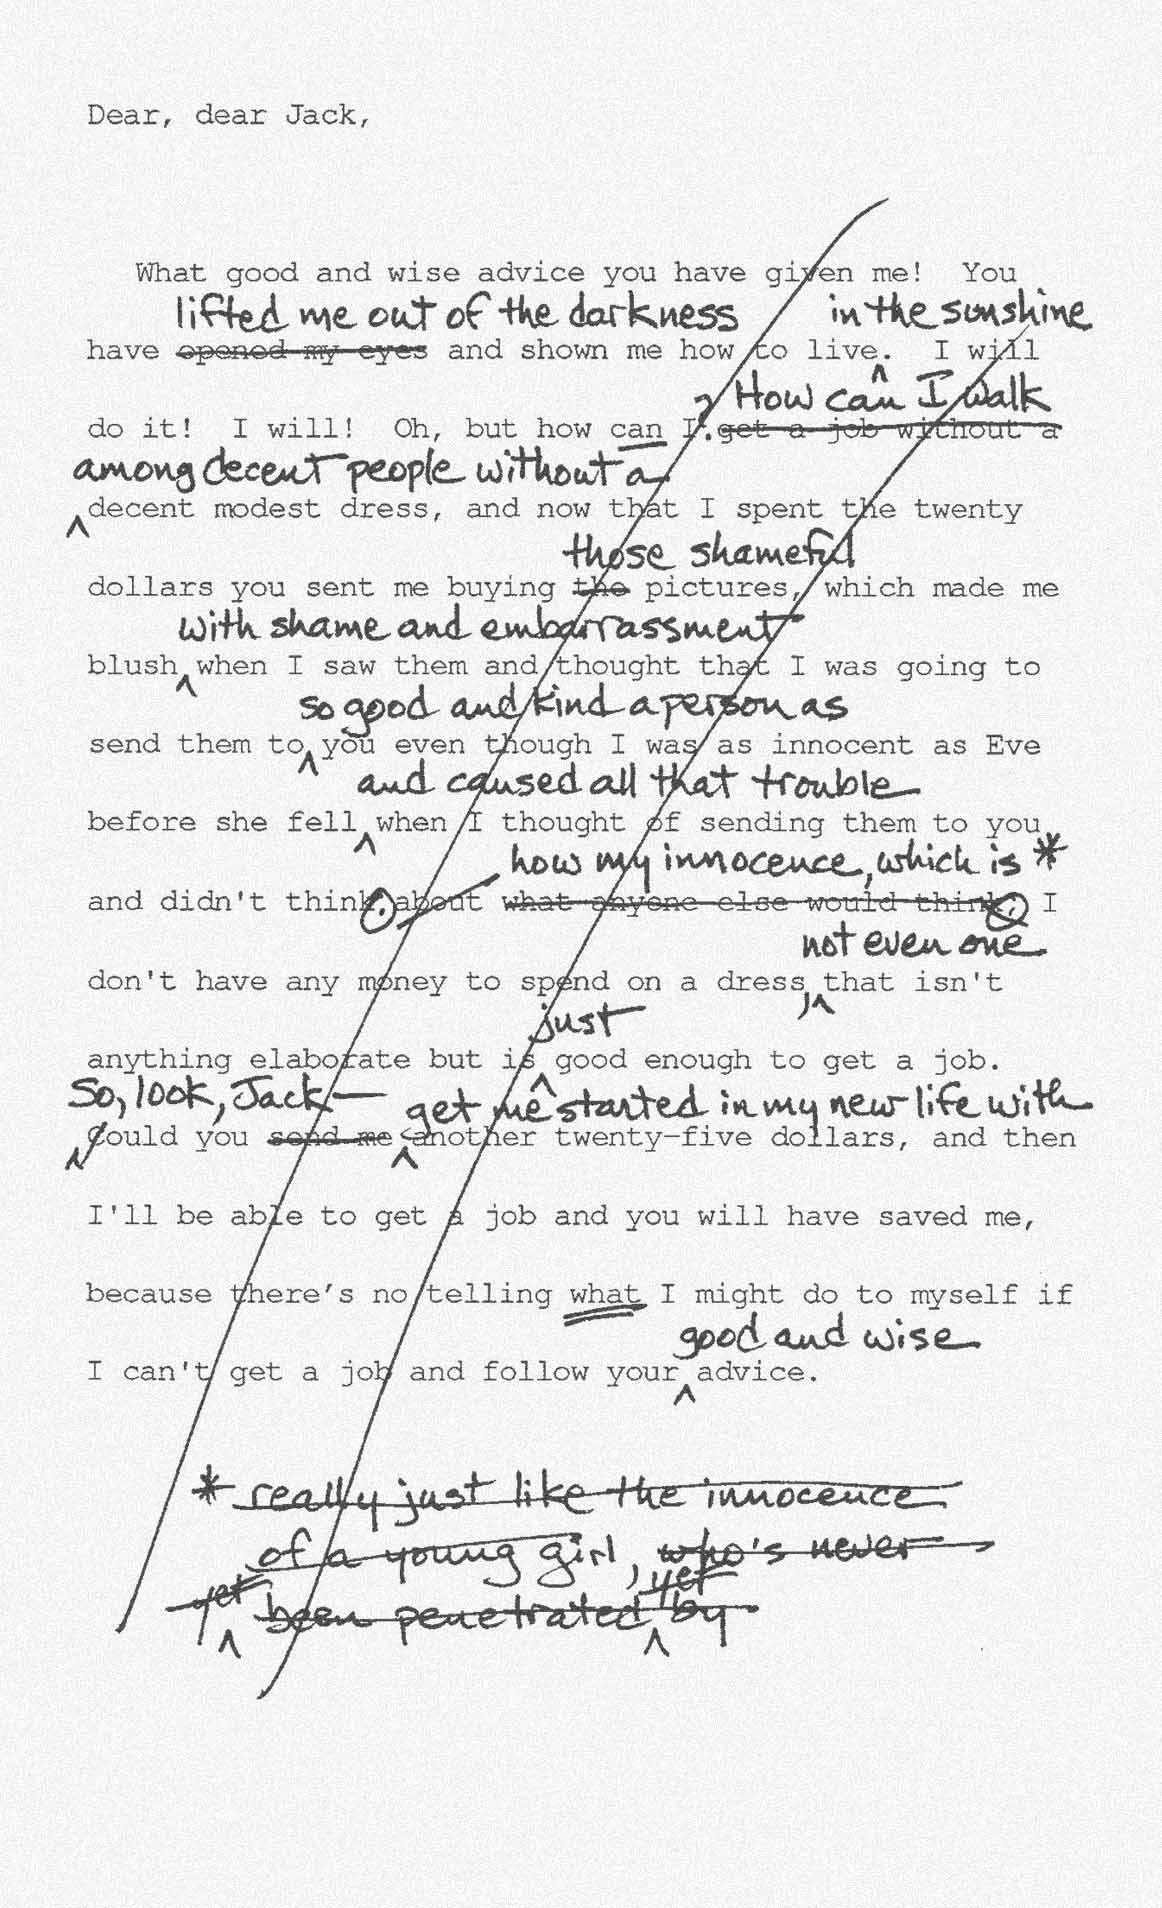 Dear, dear Jack,
What good and wise advice you have given me!  You
lifted me out of the darkness in the sunshine
have opened my eyes and shown me how to live.  I will
? How can I walk
do it!  I will!  Oh, but how can I. get a job without a
among decent people without a
decent modest dress, and now that I spent the twenty
those shameful
dollars you sent me buying the pictures, which made me
with shame and embarrassment
blush when I saw them and thought that I was going to
so good and kind a person as
send them to you even though I was as innocent as Eve
and caused all that trouble
before she fell when I thought of sending them to you
how my innocence, which is *
and didn't think. about what anyone else would think; I
not even one
don't have any money to spend on a dress, that isn't
just
anything elaborate but is good enough to get a job.
So, look, Jack—
get me started in my new life with
Could you send me another twenty-five dollars, and then
I'll be able to get a job and you will have saved me,
because there's no telling what I might do to myself if
good and wise
I can't get a job and follow your advice.
* really just like the innocence
of a young girl, who's never
yet been penetrated yet by